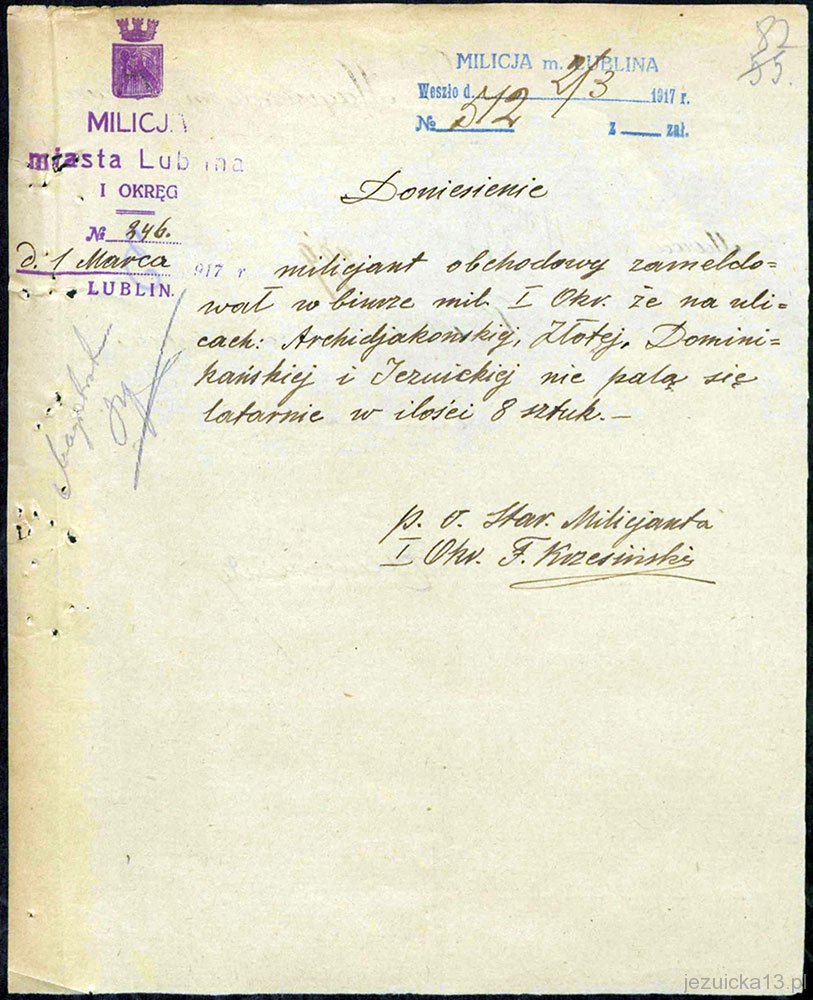 82
55.
MILICJA m. LUBLINA
Weszło d. 2/3 1917 r.
№ 512 z zał.
MILICJA
miasta Lublina
I OKRĘG
№ 246.
d. 1 Marca 917 r
LUBLIN.
Doniesienie
milicjant obchodowy zameldo-
wał w biurze mil. I Okr. że na uli-
cach: Archidjakońskiej, Złotej, Domini-
kańskiej i Jezuickiej nie palą się
latarnie w ilości 8 sztuk.—
p. o. Star. Milicjanta
I Okr. F. Krzesiński
jezuicka13.pl